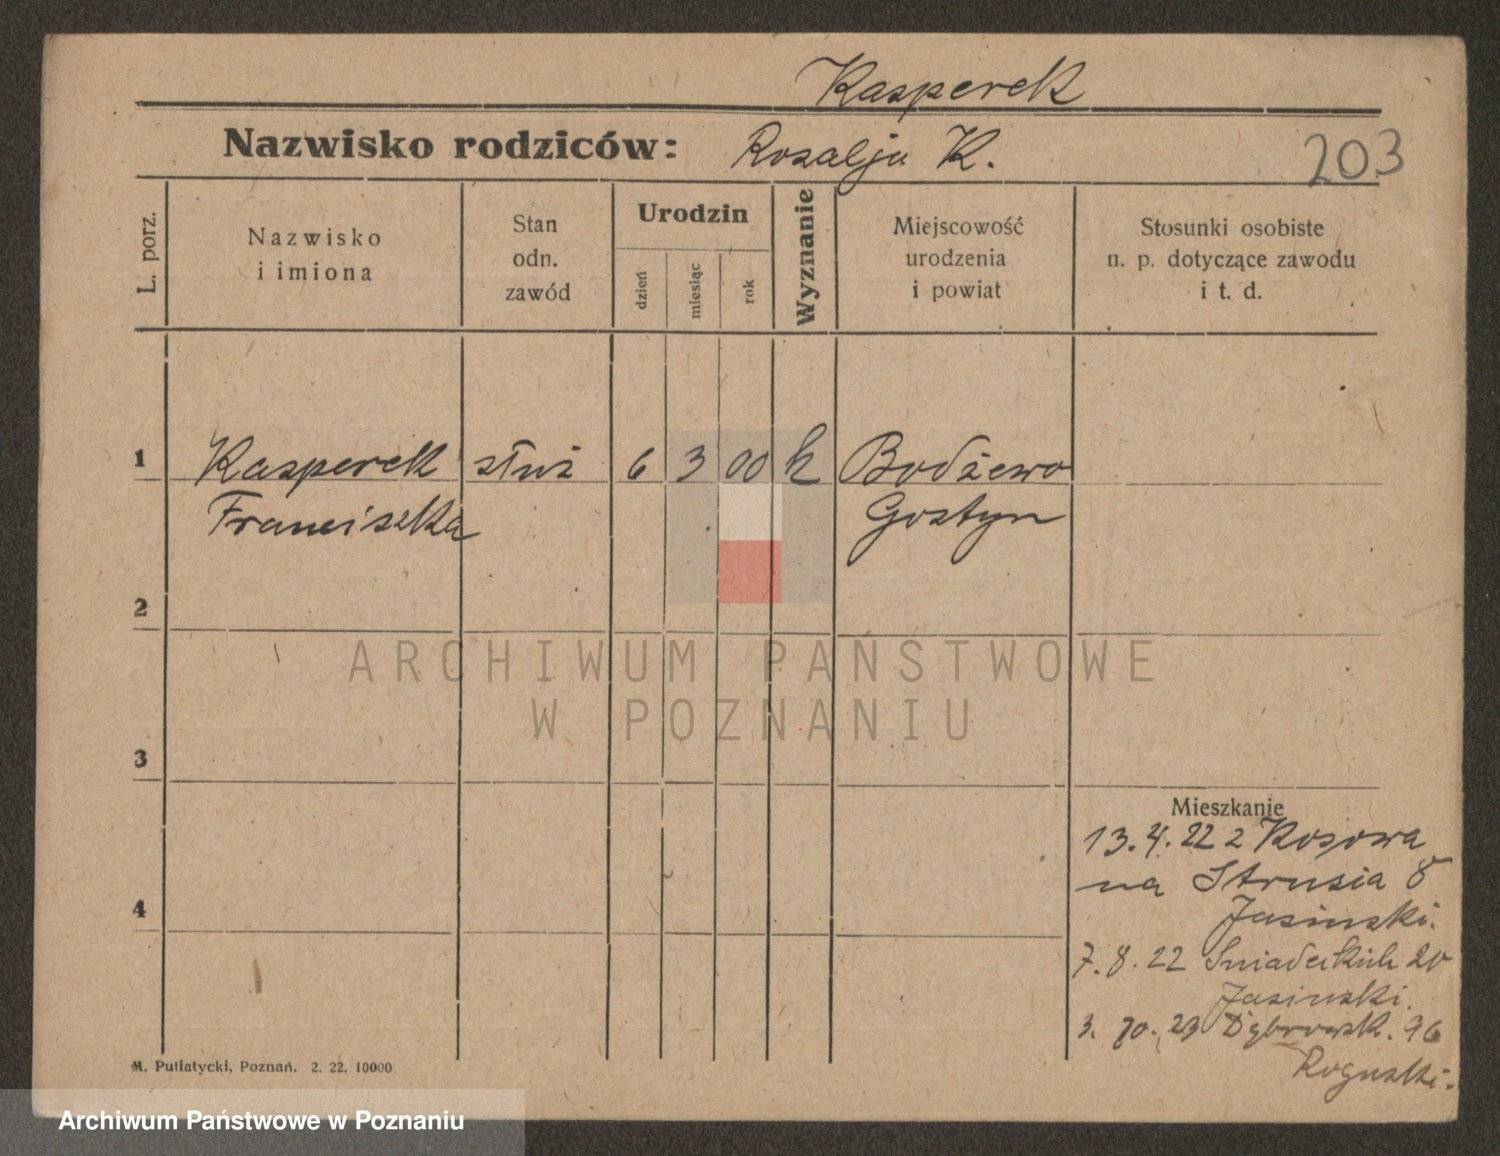 Kasperek
Nazwisko rodziców: Rozalja K.
203
L. porz.
Nazwisko i imiona
Stan odn. zawód
Urodzin
dzień
miesiąc
rok
Wyznanie
Miejscowość urodzenia i powiat
Stosunki osobiste n. p. dotyczące zawodu i t. d.
1 Kasperek służ 6 3 00 k Bodżewo
Franciszka Gostyn
2
ARCHIWUM PAŃSTWOWE
W POZNANIU
3
Mieszkanie
13.4.22 z Kosowa
na Strusia 8
Jasinski.
4
7.8.22 Sniadeckich 20
Jasinski.
3.10.23 Dąbrowsk. 96
Roguski.
M. Putiatycki, Poznań. 2. 22. 10000
Archiwum Państwowe w Poznaniu